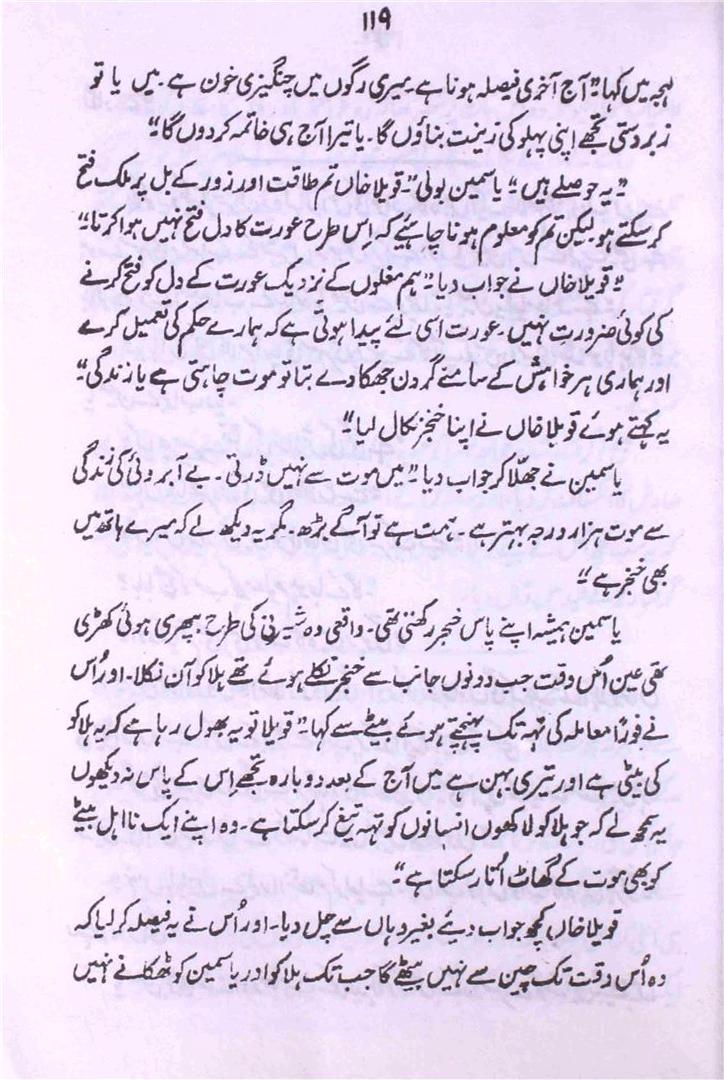 ۱۱۹
لہجہ میں کہا۔" آج آخری فیصلہ ہونا ہے۔ میری رگوں میں چنگیزی خون ہے۔ میں یا تو
زبردستی تجھے اپنی پہلو کی زینت بناؤں گا۔ یا تیرا آج ہی خاتمہ کردوں گا۔"
"یہ حوصلے ہیں"، یاسمین بولی۔" قوبلا خاں تم طاقت اور زور کے بل پر ملک فتح
کرسکتے ہو۔ لیکن تم کو معلوم ہونا چاہئیے کہ اِس طرح عورت کا دل فتح نہیں ہوا کرتا۔"
"قوبلا خاں نے جواب دیا۔" ہم مغلوں کے نزدیک عورت کے دل کو فتح کرنے
کی کوئی ضرورت نہیں۔ عورت اسی لئے پیدا ہوئی ہے کہ ہمارے حکم کی تعمیل کرے
اور ہماری ہر خواہش کے سامنے گردن جھکا دے بتا تو موت چاہتی ہے یا زندگی۔"
یہ کہتے ہوئے قوبلا خاں نے اپنا خنجر نکال لیا۔"
یاسمین نے جھلا کر جواب دیا۔" میں موت سے نہیں ڈرتی۔ بے آبروئی کی زندگی
سے موت ہزار درجہ بہتر ہے۔ ہمت ہے تو آگے بڑھ۔ مگر یہ دیکھ لے کہ میرے ہاتھ میں
بھی خنجر ہے۔"
یاسمین ہمیشہ اپنے پاس خنجر رکھتی تھی۔ واقعی وہ شیرنی کی طرح بپھری ہوئی کھڑی
تھی عین اُس وقت جب دونوں جانب سے خنجر نکلے ہوئے تھے ہلاکو آن نکلا۔ اور اُس
نے فوراً معاملہ کی تہہ تک پہنچتے ہوئے بیٹے سے کہا۔" قوبلا تو یہ بھول رہا ہے کہ یہ ہلاکو
کی بیٹی ہے اور تیری بہن ہے میں آج کے بعد دوبارہ تجھے اِس کے پاس نہ دیکھوں
یہ سمجھ لے کہ جو ہلاکو لاکھوں انسانوں کو تہہ تیغ کرسکتا ہے۔ وہ اپنے ایک نا اہل بیٹے
کو بھی موت کے گھاٹ اُتار سکتا ہے۔"
قوبلا خاں کچھ جواب دیئے بغیر وہاں سے چل دیا۔ اور اُس نے یہ فیصلہ کر لیا کہ
وہ اُس وقت تک چین سے نہیں بیٹھے گا جب تک ہلاکو اور یاسمین کو ٹھکانے نہیں